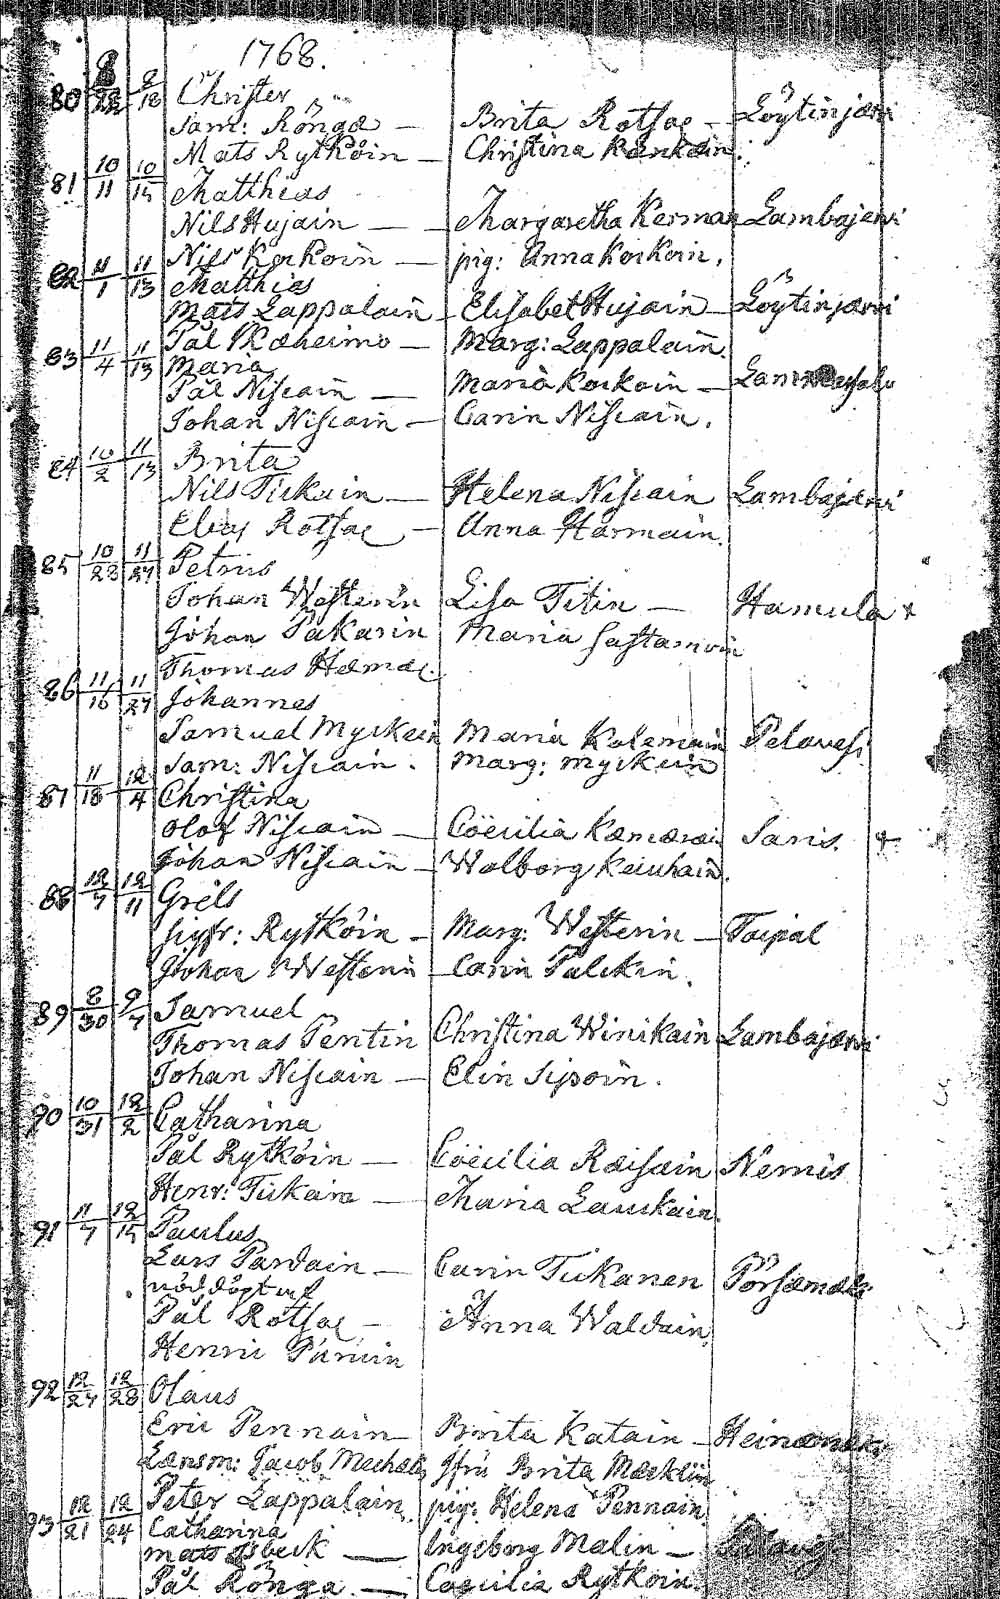 1768.
80 8/22 9/18 Christer
Sam: Röngæ — Brita Rotsae — Löytinjærvi
Mats Rytköin — Christina Kænkæin.
81 10/11 10/14 Matthias
Nils Hujain — Margaretha Kerman Lambajærvi
Nils Korkoin — pig: Anna Korkoin.
82 11/1 11/13 Matthias
Mats Lappalain — Elisabet Hujain — Löytinjærvi
Pål Ikæheimo — Marg: Lappalain.
83 11/4 11/13 Maria
Pål Niscain — Maria Korkoin —
Johan Niscain — Carin Niscain.
84 10/2 11/13 Brita
Nils Tickain — Helena Niscain Lambajærvi
Elias Rotsae — Anna Harmain.
85 10/28 11/27 Petrus
Johan Westerin Lisa Titin — Hamula +
Johan Pakarin Maria Sastamoin
Thomas Hæmæl.
86 11/16 11/27 Johannes
Samuel Myckein Maria Kolemain Pelavesi
Sam: Niscain. Marg: Myckein
87 11/18 12/4 Christina
Olof Niscain — Cöecilia Kæmæræi Saris. +
Johan Niscain — Walborg Kauhain.
88 12/7 12/11 Grels
Sigfr: Rytköin — Marg: Westerin — Taipal
Johan Westerin — Carin Palckin.
89 8/30 9/7 Samuel
Thomas Pentin Christina Winikain Lambajærvi
Johan Niscain — Elin Siposn.
90 10/31 12/2 Catharina
Pål Rytköin — Cöecilia Ræisæin Nemis
Henr: Tickain — Maria Lauckain.
91 11/7 12/14 Paulus
Lars Pardain — Carin Tickanen Pörsæmæki
nöddöpt af
Pål Rotsae — Anna Waldain,
Henric Parvin
92 12/27 12/28 Olaus
Eric Pennain — Brita Katain — Heinæmæki
Lænsm: Jacob Jfru Brita Mæcklin
Peter Lappalain. pig: Helena Pennain.
93 12/21 12/24 Catharina
Mats Isbeck — Ingeborg Malin —
Pål Rönga. — Cæcilia Rytköin.